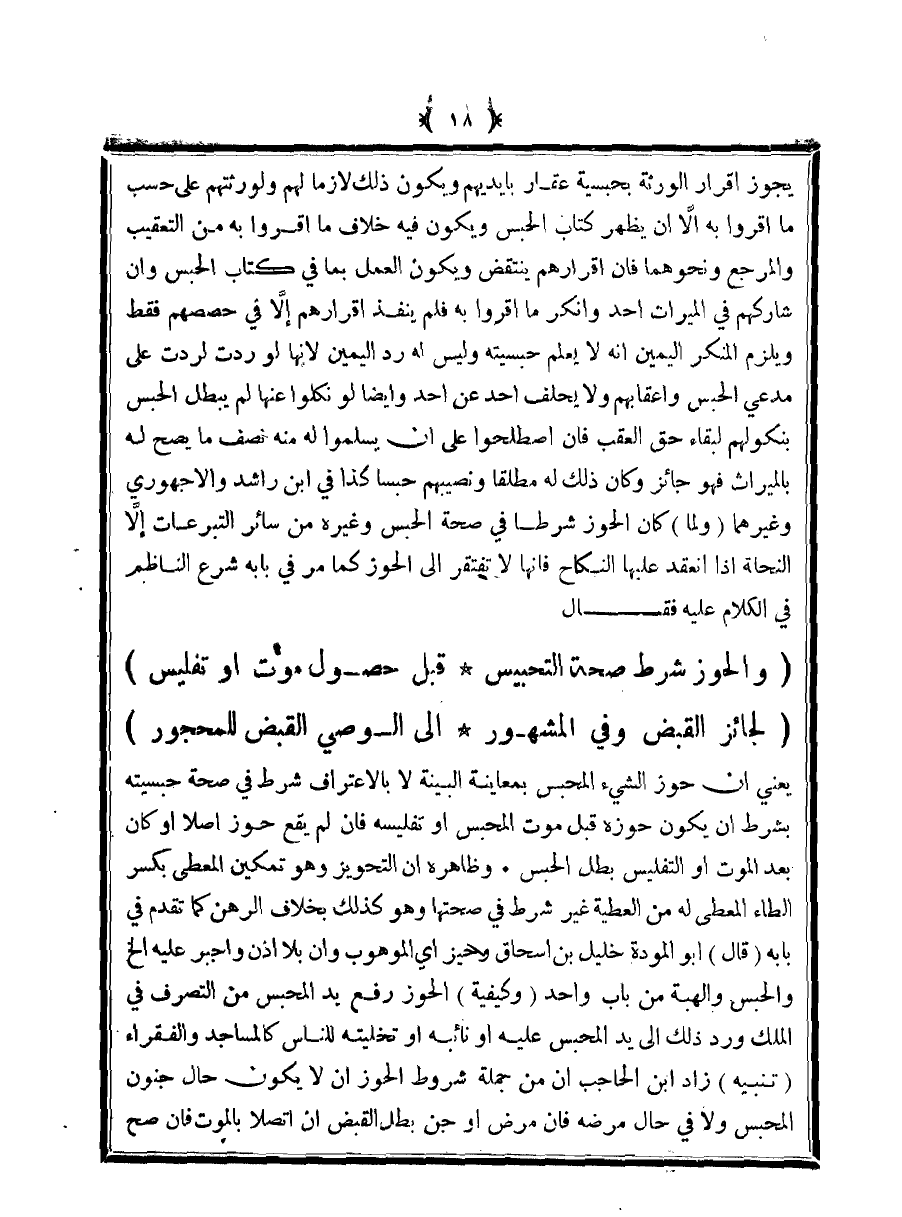 ﴿ ١٨ ﴾
يجوز اقرار الورثة بحبسية عقار بايديهم ويكون ذلك لازما لهم ولورثتهم على حسب
ما اقروا به الَّا ان يظهر كتاب الحبس ويكون فيه خلاف ما اقروا به من التعقيب
والمرجع ونحوهما فان اقرارهم ينتقض ويكون العمل بما في كتاب الحبس وان
شاركهم في الميراث احد وانكر ما اقروا به فلم ينفذ اقرارهم إلَّا في حصصهم فقط
ويلزم المنكر اليمين انه لا يعلم حبسيته وليس له رد اليمين لانها لو ردت لردت على
مدعي الحبس واعقابهم ولا يحلف احد عن احد وايضا لو نكلوا عنها لم يبطل الحبس
بنكولهم لبقاء حق العقب فان اصطلحوا على ان يسلموا له منه نصف ما يصح له
بالميراث فهو جائز وكان ذلك له مطلقا ونصيبهم حبسا كذا في ابن راشد والاجهوري
وغيرهما ( ولما ) كان الحوز شرطا في صحة الحبس وغيره من سائر التبرعات إلَّا
النحلة اذا انعقد عليها النكاح فانها لا تفتقر الى الحوز كما مر في بابه شرع الناظم
في الكلام عليه فقال
( والحوز شرط صحة التحبيس * قبل حصول موت او تفليس )
( لجائز القبض وفي المشهور * الى الوصي القبض للمحجور )
يعني ان حوز الشيء المحبس بمعاينة البينة لا بالاعتراف شرط في صحة حبسيته
بشرط ان يكون حوزه قبل موت المحبس او تفليسه فان لم يقع حوز اصلا او كان
بعد الموت او التفليس بطل الحبس • وظاهره ان التحويز وهو تمكين المعطي بكسر
الطاء المعطى له من العطية غير شرط في صحتها وهو كذلك بخلاف الرهن كما تقدم في
بابه ( قال ) ابو المودة خليل بن اسحاق وحيز اي الموهوب وان بلا اذن واجبر عليه الخ
والحبس والهبة من باب واحد ( وكيفية ) الحوز رفع يد المحبس من التصرف في
الملك ورد ذلك الى يد المحبس عليه او نائبه او تخليته للناس كالمساجد والفقراء
( تنبيه ) زاد ابن الحاجب ان من جملة شروط الحوز ان لا يكون حال جنون
المحبس ولا في حال مرضه فان مرض او جن بطل القبض ان اتصلا بالموت فان صح